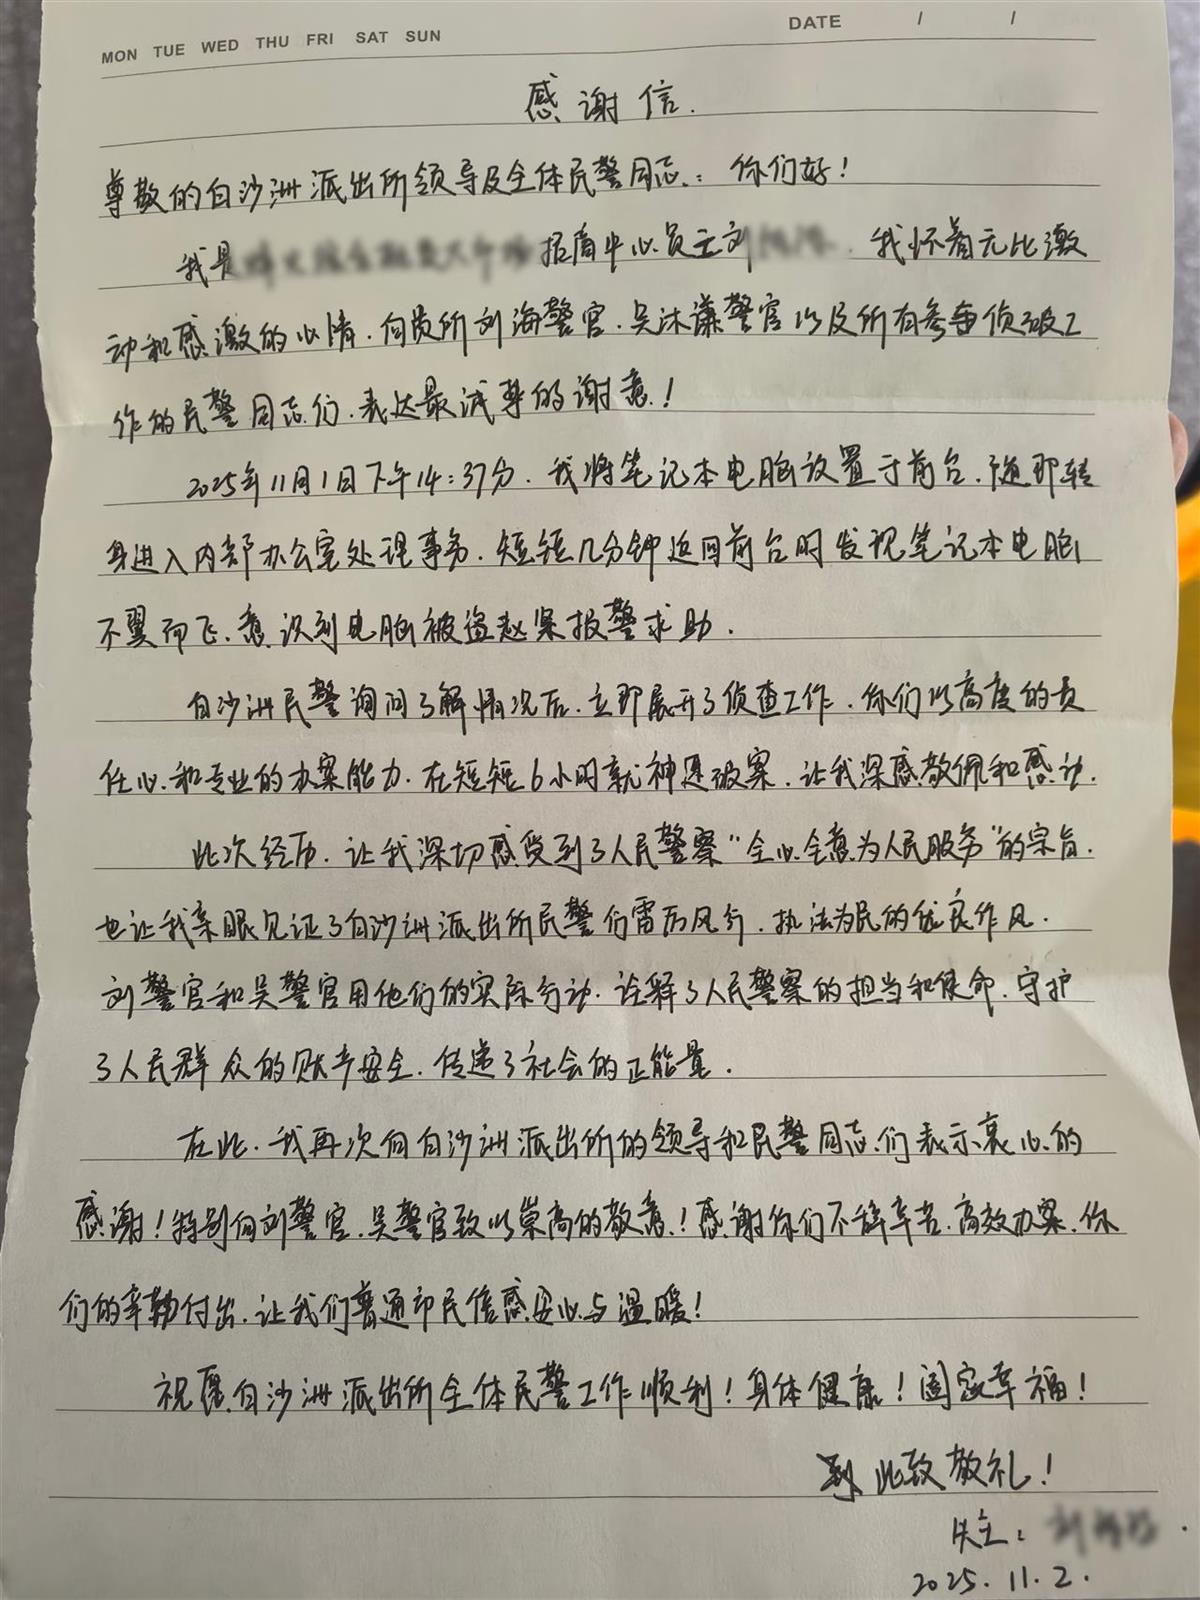 MON TUE WED THU FRI SAT SUN DATE / /
感谢信.
尊敬的白沙洲派出所领导及全体民警同志：你们好！
我是 招商中心员工刘 ，我怀着无比激
动和感激的心情，向贵所刘海警官、吴沐谦警官以及所有参与侦破工
作的民警同志们，表达最诚挚的谢意！
2025年11月1日下午14:37分，我将笔记本电脑放置于前台，随即转
身进入内部办公室处理事务，短短几分钟返回前台时发现笔记本电脑
不翼而飞，意识到电脑被盗赶紧报警求助.
白沙洲民警询问了解情况后，立即展开了侦查工作，你们以高度的责
任心和专业的办案能力，在短短6小时就神速破案，让我深感敬佩和感动.
此次经历，让我深切感受到了人民警察"全心全意为人民服务"的宗旨.
也让我亲眼见证了白沙洲派出所民警们雷厉风行，执法为民的优良作风.
刘警官和吴警官用他们的实际行动，诠释了人民警察的担当和使命，守护
了人民群众的财产安全，传递了社会的正能量.
在此，我再次向白沙洲派出所的领导和民警同志们表示衷心的
感谢！特别向刘警官、吴警官致以崇高的敬意！感谢你们不辞辛苦，高效办案，你
们的辛勤付出，让我们普通市民倍感安心与温暖！
祝愿白沙洲派出所全体民警工作顺利！身体健康！阖家幸福！
此致敬礼！
失主：
2025.11.2.